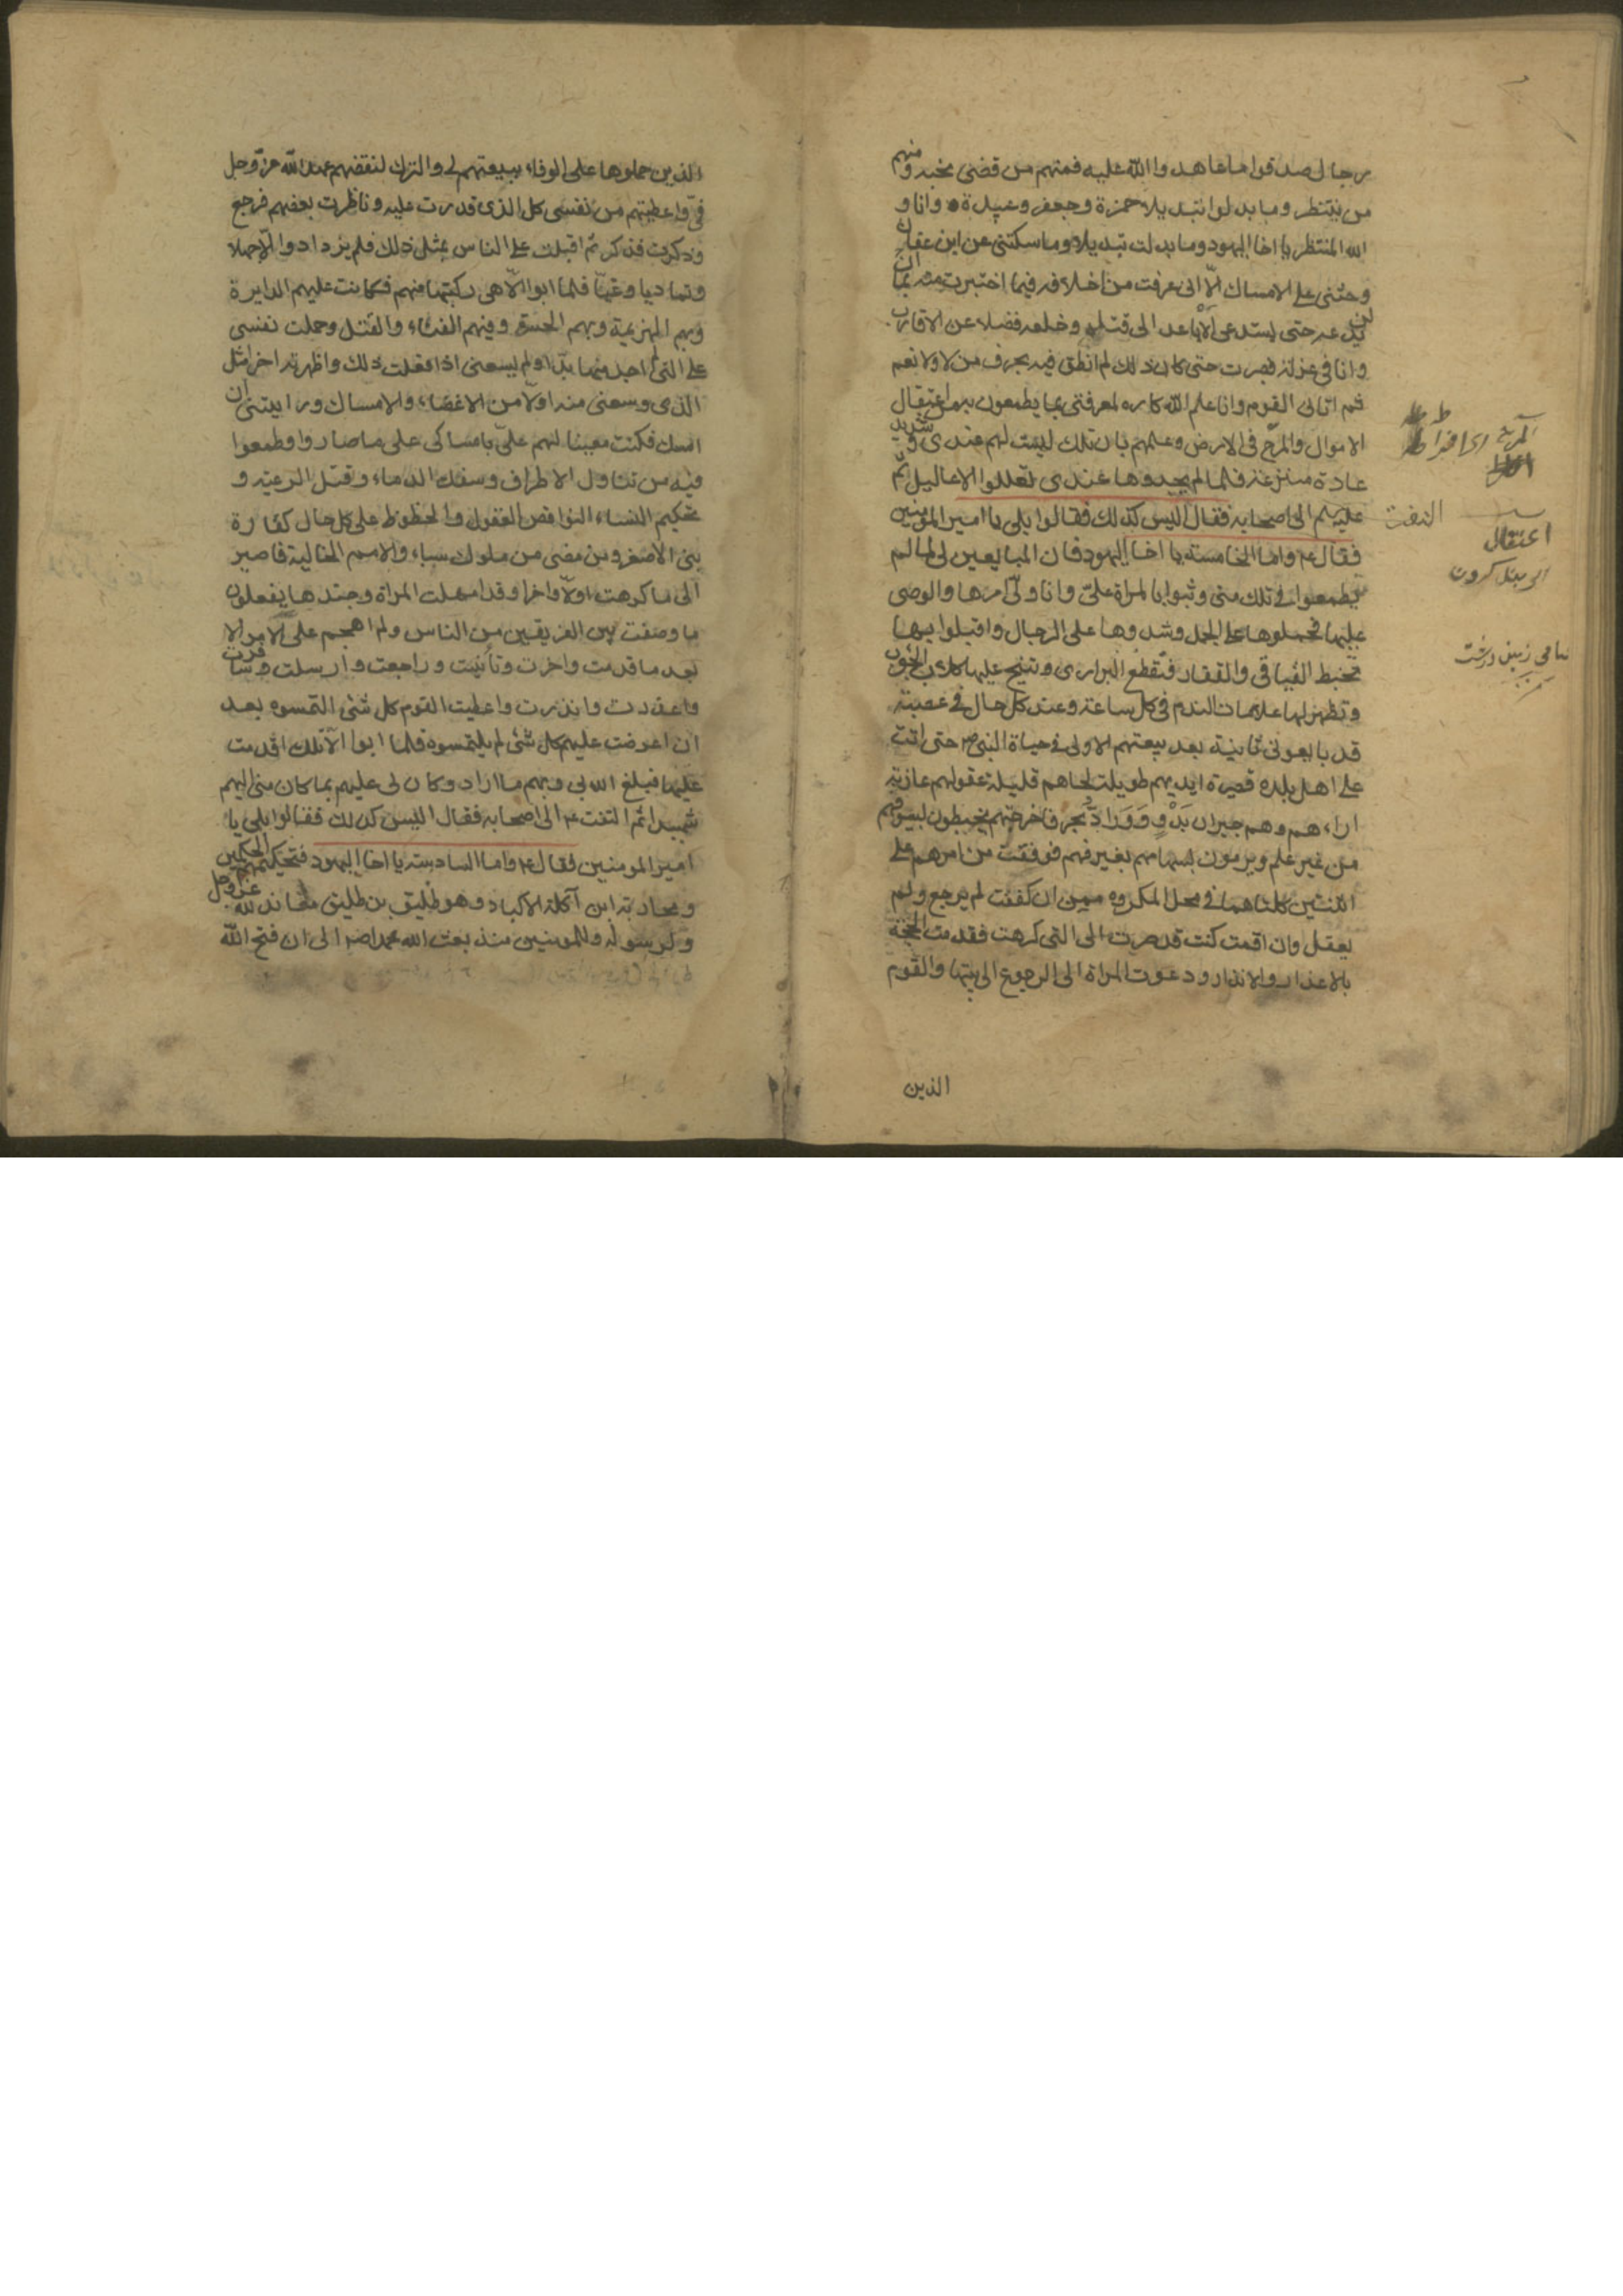 رجال صدقوا ما عاهدوا الله عليه فمنهم من قضى نحبه ومنهم
من ينتظر وما بدلوا تبديلا حمزة وجعفر وعبيدة وانا و
الله المنتظر يا اخا اليهود وما بدلت تبديلا وما سكتنى عن ابن عفان
وحثنى على الامساك الّا انى عرفت من اخلاقه فيما اختبرت منه بما ان
لن يدعه حتى يستدعى الاباعد الى قتله وخلعه فضلا عن الاقارب
وانا فى عزلة فصبرت حتى كان ذلك لم انطق فيه بحرف من لا ولا نعم
ثم اتانى القوم وانا علم الله كاره لمعرفتى بما يطمعون به من اعتقال
الاموال والمرح فى الارض وعلمهم بان تلك ليست لهم عندى وشديد
عادة منتزعة فلما لم يجدوها عندى تعللوا الاعاليل ثم
الى اصحابه فقال اليس كذلك فقالوا بلى يا امير المومنين
فقال ع واما الخامسة يا اخا اليهود فان المبايعين لى لما لم
يطمعوا فى تلك منى وثبوا بالمراة علىّ وانا ولىّ امرها والوصى
عليها فحملوها على الجمل وشدوها على الرحال واقبلوا بها
تخبط الفيافى والقفار وتقطع البرارى وتنبح عليها كلاب الحوب
وتظهر لها علامات الندم فى كل ساعة وعند كل حال فى عصبة
قد بايعونى ثانية بعد بيعتهم الاولى فى حياة النبى ص حتى اتت
على اهل بلدة قصيرة ايديهم طويلة لحاهم قليلة عقولهم عازبة
اراءهم وهم جيران بدو ووراد بحر فاخرجتهم يخبطون بسيوفهم
من غير علم ويرمون بسهامهم بغير فهم فوقفت من امرهم على
اثنتين كلتاهما فى محل المكروه ممن ان كففت لم يرجع ولم
يعقل وان اقمت كنت قد صرت الى التى كرهت فقدمت الحجة
بالاعذار والانذار ودعوت المراة الى الرجوع الى بيتها والقوم
الذين
التفت
اعتقال
الذين حملوها على الوفاء ببيعتهم لى والترك لنقضهم عهد الله عز وجل
فىّ واعطيتهم من نفسى كل الذى قدرت عليه وناظرت بعضهم فرجع
وذكرت فذكر ثم اقبلت على الناس بمثل ذلك فلم يزدادوا الّا جهلا
وتماديا وغيّا فلما ابوا الّا هى ركبتها منهم فكانت عليهم الدايرة
وبهم الهزيمة وبهم الحسرة وفيهم الفناء والقتل وحملت نفسى
على التى لم اجد منها بدّا ولم يسعنى اذا فعلت ذلك واظهرته اخرا مثل
الذى وسعنى منه اولا من الاغضاء والامساك ورايتنى ان
امسك فكنت معينا لهم علىّ بامساكى على ما صاروا وطمعوا
فيه من تناول الاطراف وسفك الدماء وقتل الرعية و
تحكيم النساء النواقص العقول والحظوظ على كل حال كفارة
بنى الاصفر ومن مضى من ملوك سباء والامم الخالية فاصير
الى ما كرهت اولا واخرا وقد اهملت المراة وجندها يفعلون
ما وصفت بين الفريقين من الناس ولم اهجم على الامر الا
بعد ما قدمت واخرت وتأنيت وراجعت وارسلت وسافرت
واعذرت وانذرت واعطيت القوم كل شئ التمسوه بعد
ان اعرضت عليهم كل شئ لم يلتمسوه فلما ابوا الّا تلك اقدمت
عليها فبلغ الله بى وبهم ما اراد وكان لى عليهم بما كان منى اليهم
شهيدا ثم التفت ع الى اصحابه فقال اليس كذلك فقالوا بلى يا
امير المومنين فقال ع واما السادسة يا اخا اليهود فتحكيمهم الحكمين
ومحاربة ابن آكلة الاكباد وهو طليق بن طليق معاند لله عز وجل
ولرسوله وللمومنين منذ بعث الله محمدا ص الى ان فتح الله